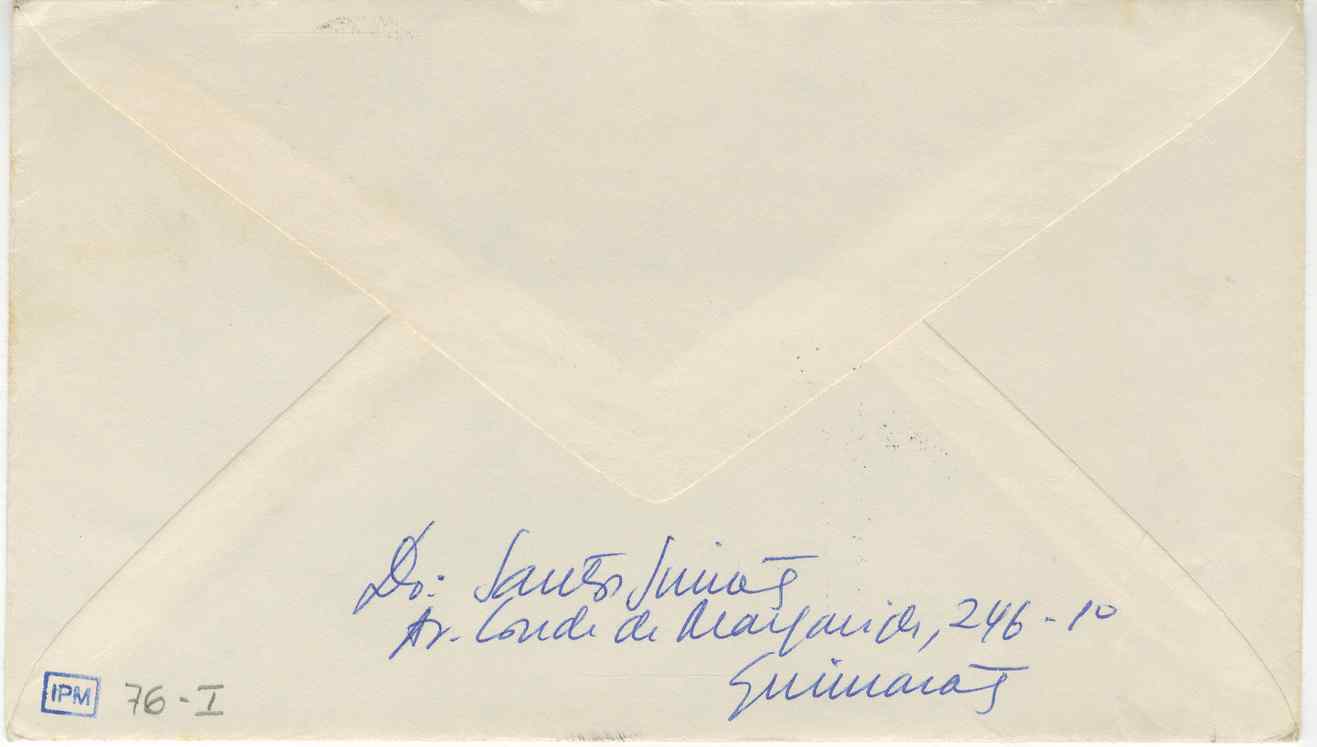 Dr: Santos Simões
Av. Conde de Margaride, 246-1º
Guimarães
IPM 76-I